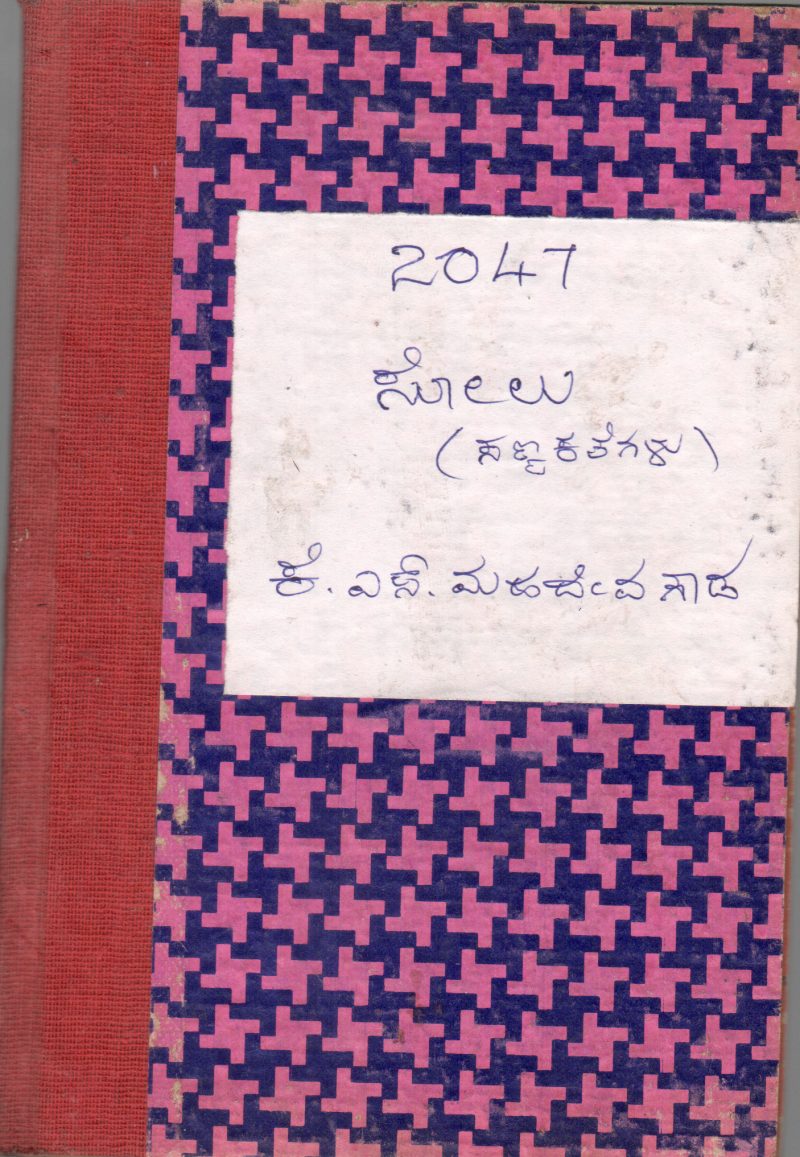 2047
ಸೋಲು
(ಸಣ್ಣಕತೆಗಳು)
ಕೆ. ಎಸ್. ಮಹದೇವಗೌಡ